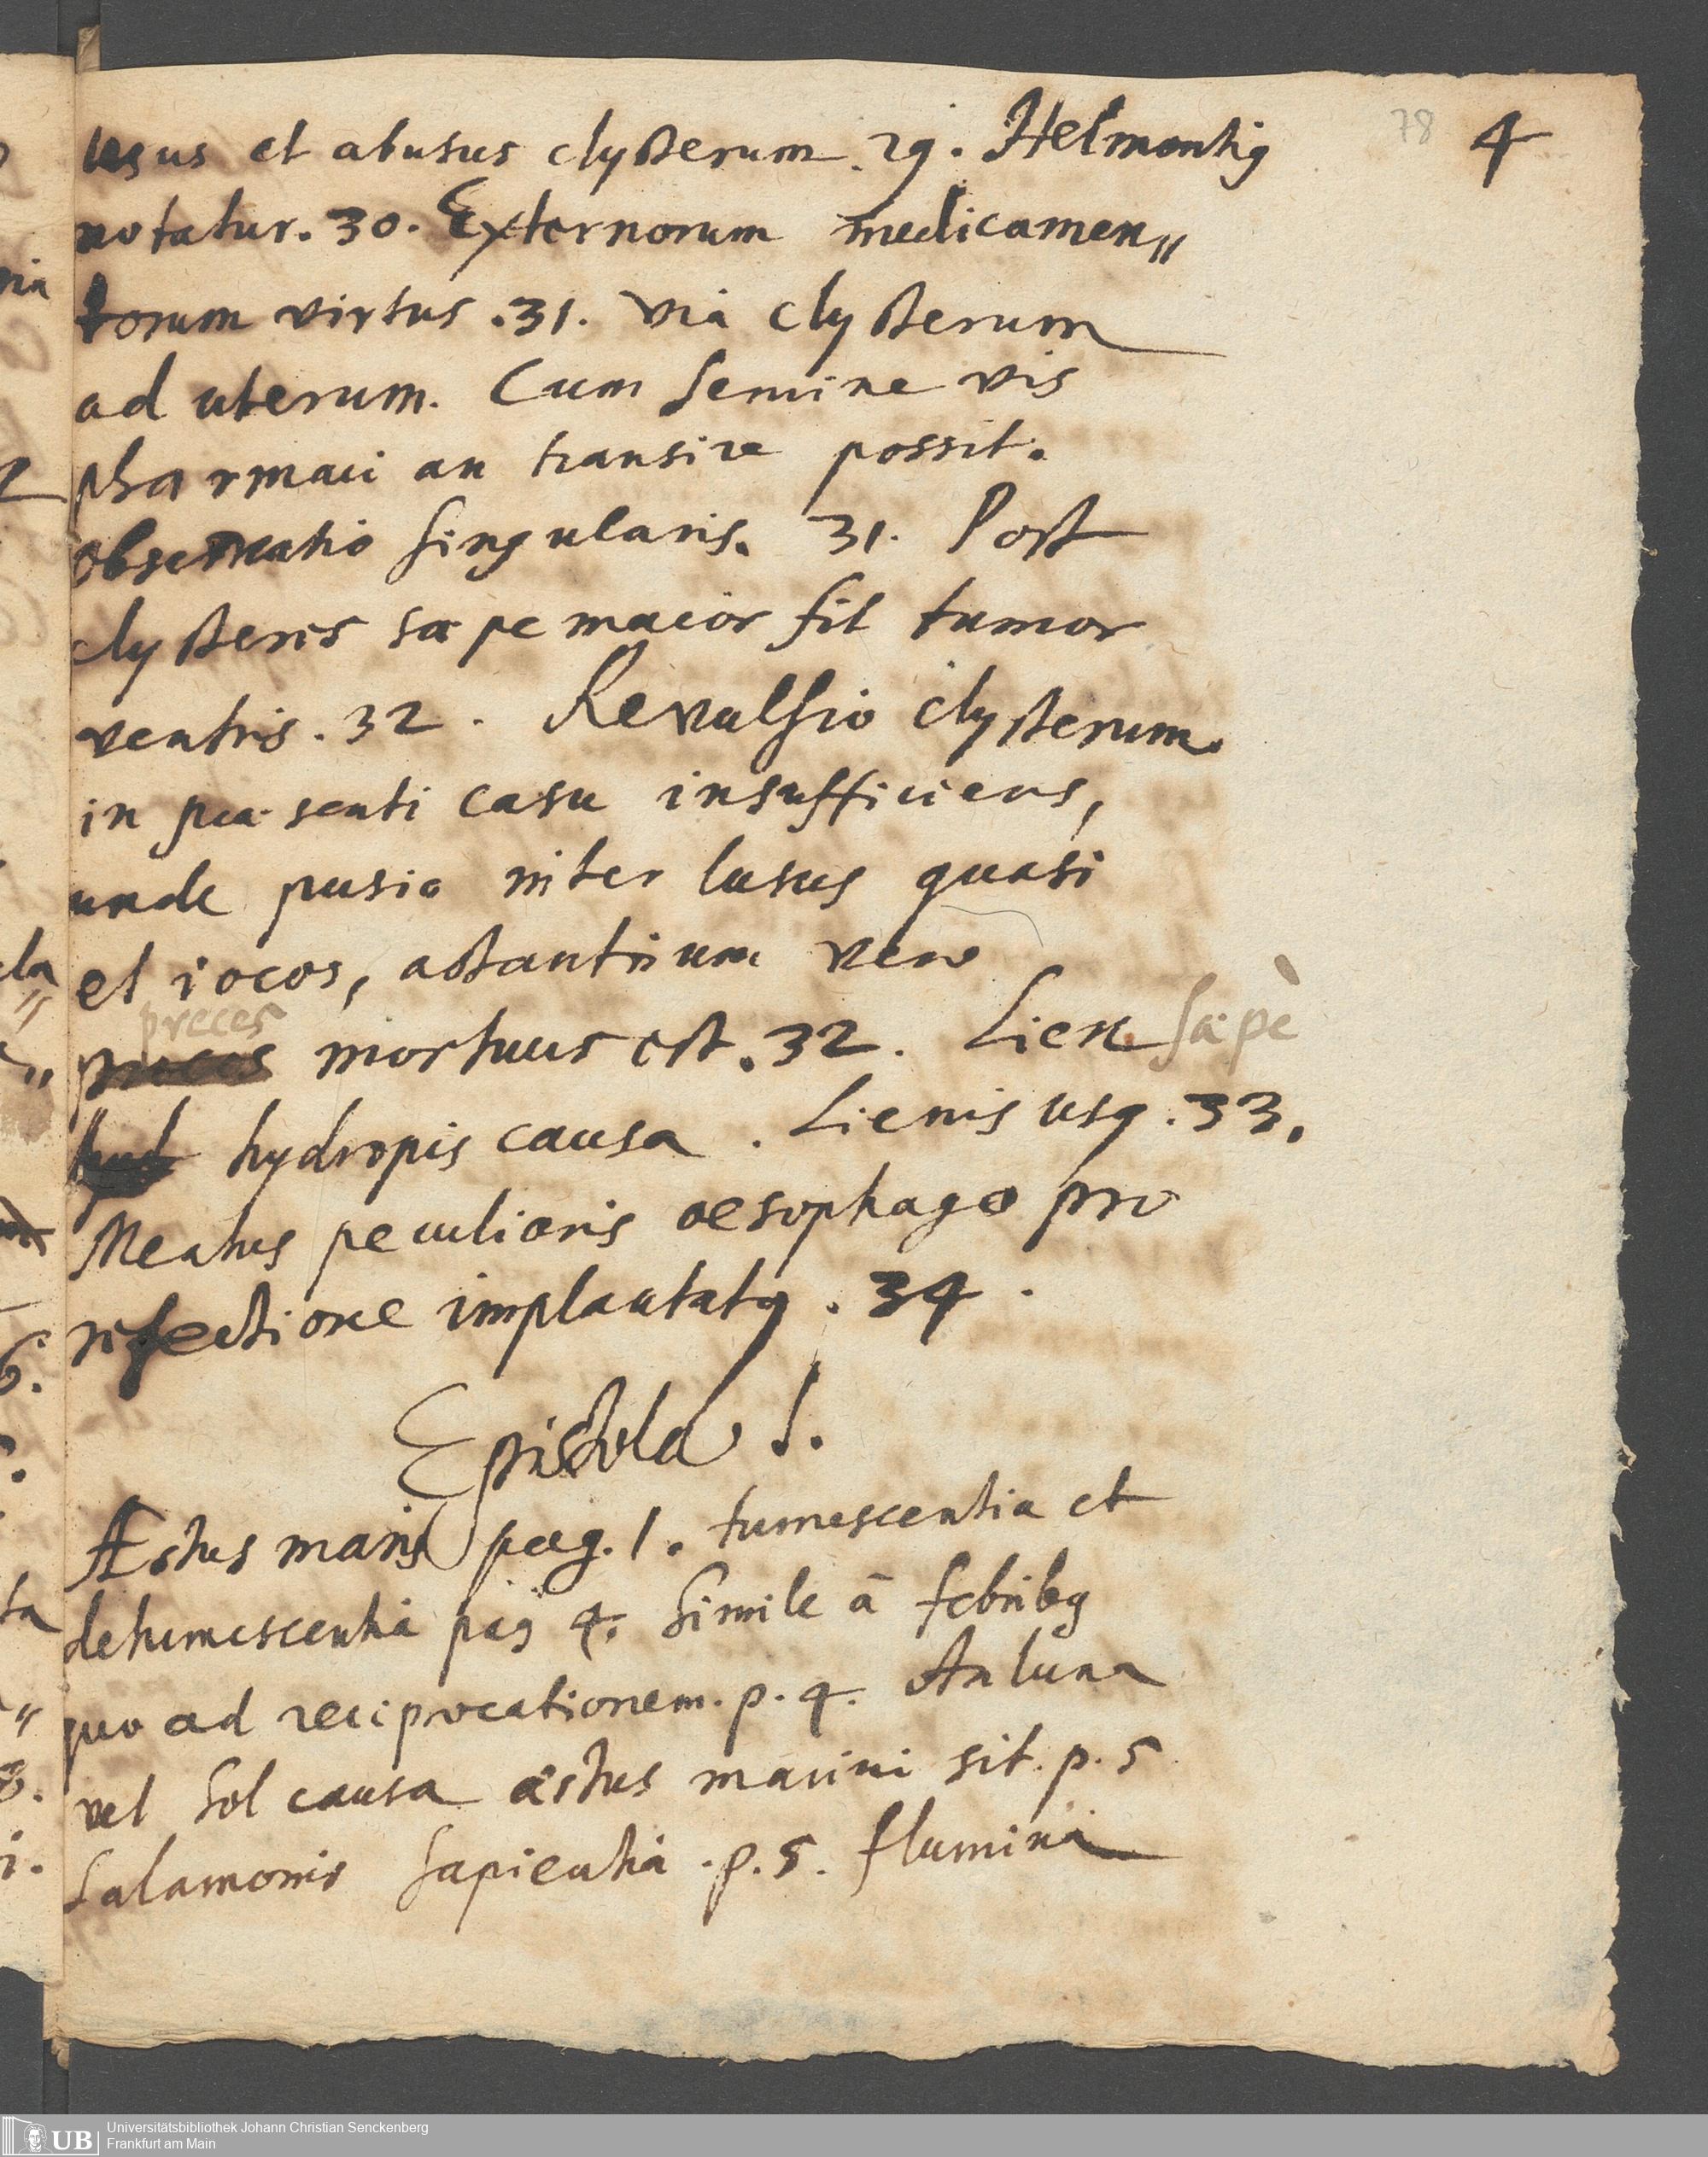 78 4
usus et abusus clysterum. 29. Helmontig
notatur. 30. Externorum medicamen„
torum virtus. 31. via clysterum
ad uterum. Cum semine vis
pharmaci an transire possit.
observatio singularis. 31. Post
clysteris sæpe maior fit tumor
ventris. 32. Revulsio clysterum
in præsenti casu insufficiens,
unde pusio inter lusus quasi
et iocos, astantium vero
preces
mortuus est. 32. Lien sæpè
hydropis causa. Lienis usq. 33.
Meatus peculiaris oesophago pro
refectione implantatq. 34.
Epistola I.
Æstus maris pag. 1. tumescentia et
detumescentia pag 4. Simile à febribq
quo ad reciprocationem. p. 4. An luna
vel Sol causa æstus marini sit. p. 5
Salamonis sapientia. p. 5. flumina
UB
Universitätsbibliothek Johann Christian Senckenberg
Frankfurt am Main